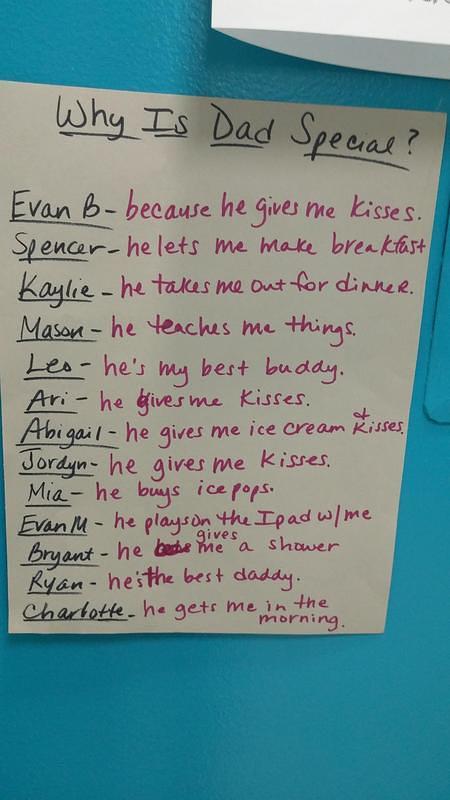 Why Is Dad Special?
Evan B - because he gives me kisses.
Spencer - he lets me make breakfast
Kaylie - he takes me out for dinner.
Mason - he teaches me things.
Leo - he's my best buddy.
Ari - he gives me kisses.
Abigail - he gives me ice cream + kisses.
Jordyn - he gives me kisses.
Mia - he buys ice pops.
Evan M - he plays on the Ipad w/me
Bryant - he gives me a shower
Ryan - he's the best daddy.
Charlotte - he gets me in the
morning.